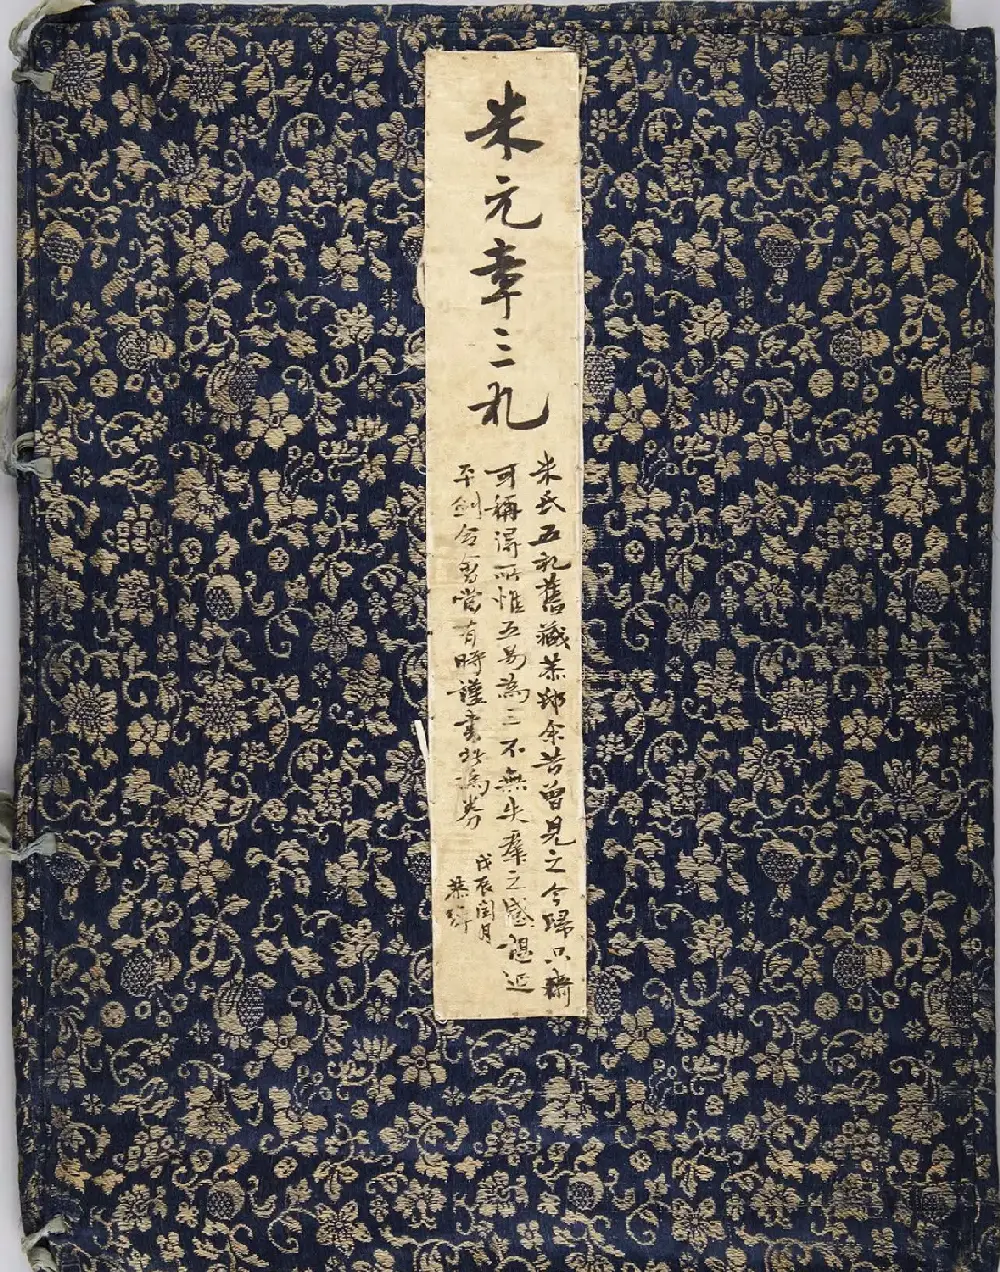 米元章三札
米氏五札舊藏恭邸余昔曾見之今歸只齋
可稱得所惟五易為三不無失羣之感儻延
平劍合會當有時謹書此為券
戊辰閏月
恭綽